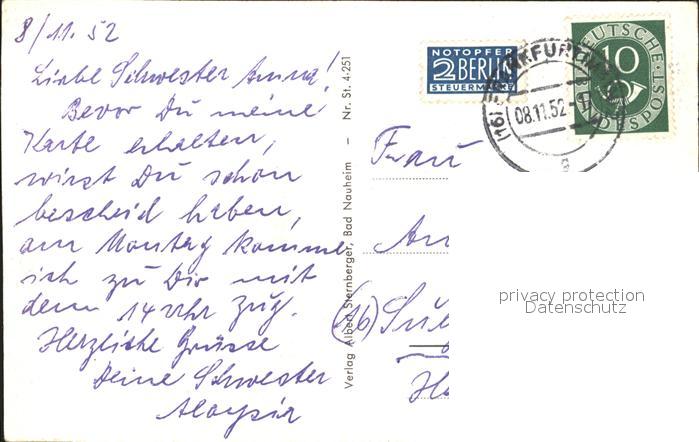 8/11. 52
Liebe Schwester Anna!
Bevor Du meine
Karte erhalten,
wirst Du schon
bescheid haben,
am Montag komme
ich zu Dir mit
dem 14 Uhr Zug.
Herzliche Grüsse
Deine Schwester
Aloysia
Verlag Albert Sternberger, Bad Nauheim – Nr. St. 4-251
NOTOPFER
2 BERLIN
STEUERMARKE
DEUTSCHE
10
BUNDESPOST
(16) FRANKFURT
08.11.52
a
Frau
An
(16)
privacy protection
Datenschutz